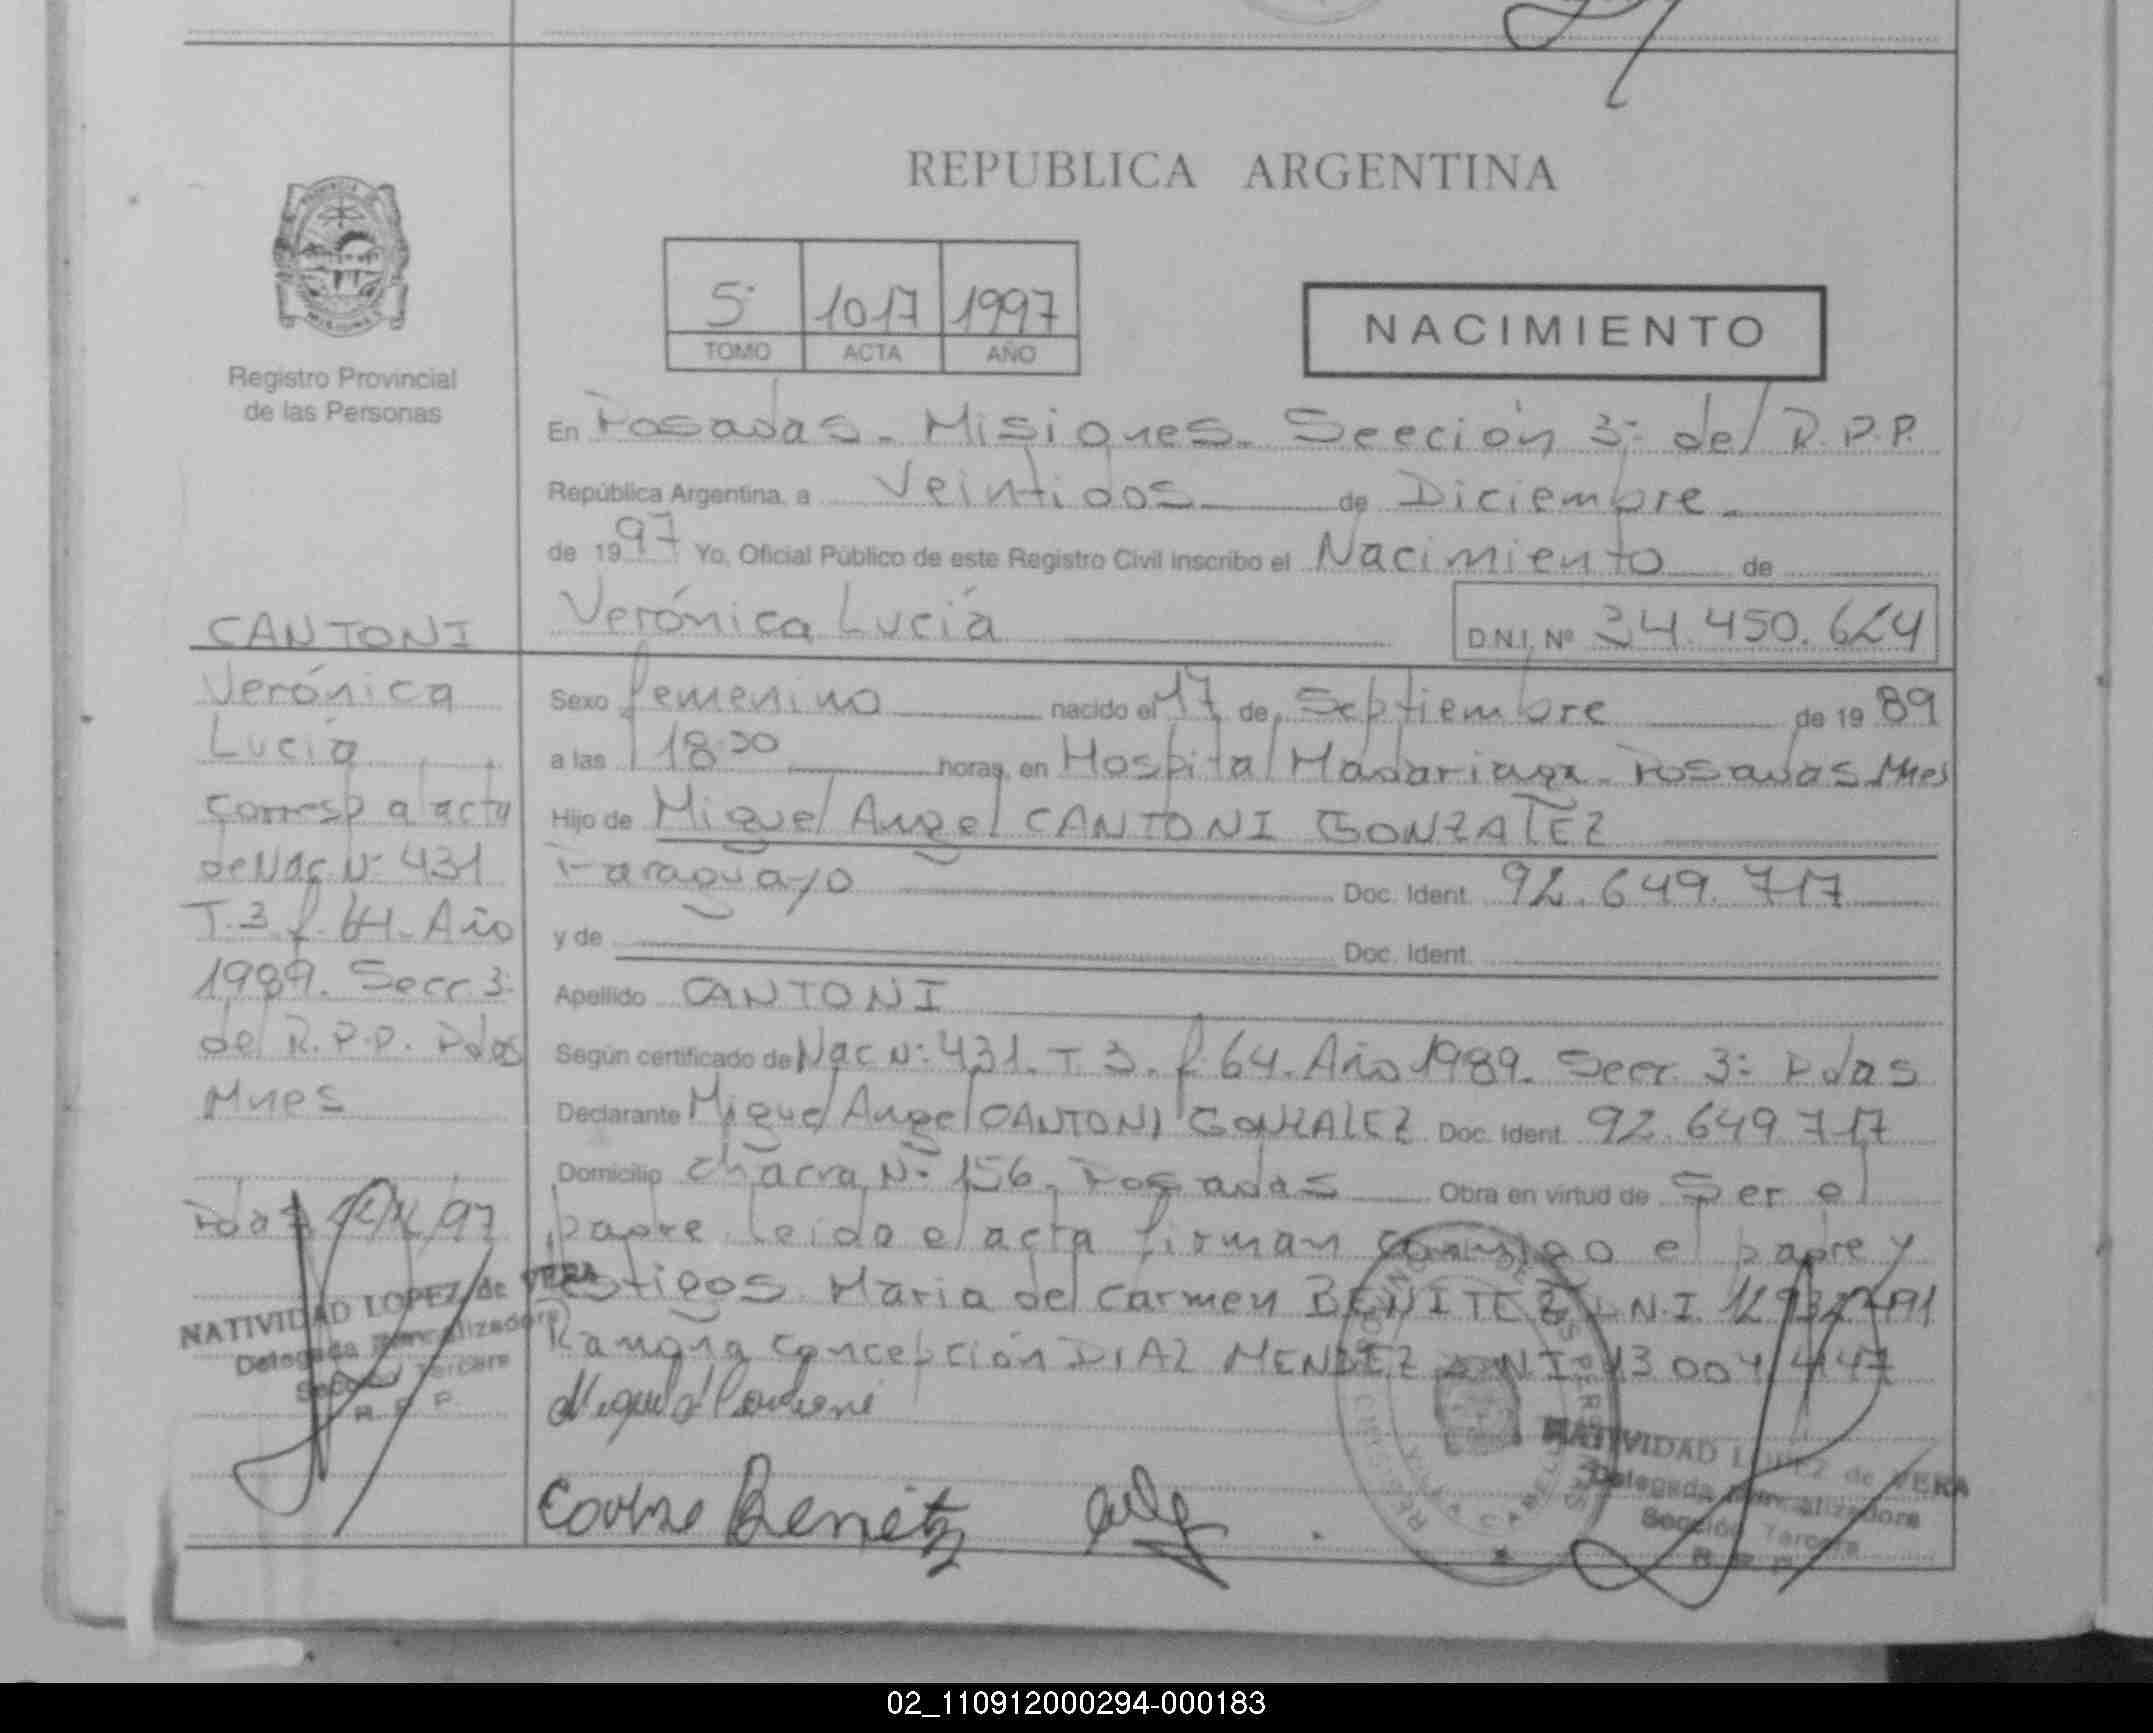 REPUBLICA ARGENTINA
5° 1017 1997
TOMO ACTA AÑO
NACIMIENTO
Registro Provincial
de las Personas
En Posadas - Misiones - Sección 3° del R.P.P.
República Argentina, a Veintidos de Diciembre
de 1997 Yo, Oficial Público de este Registro Civil inscribo el Nacimiento de
Verónica Lucía D.N.I. Nº 34.450.624
Sexo femenino nacido el 17 de Septiembre de 1989
a las horas, en Hospital Madariaga - Posadas Mnes
Hijo de Miguel Angel CANTONI GONZALEZ
Paraguayo Doc. Ident. 92.649.717
y de Doc. Ident.
Apellido CANTONI
Según certificado de Nac N° 431. T. 3. f. 64. Año 1989. Secc. 3° Pdas
Declarante Miguel Angel CANTONI GONZALEZ Doc. Ident. 92.649.717
Domicilio Chacra N° 156. Posadas Obra en virtud de Ser el
padre leida el acta firman conmigo el padre y
testigos Maria del Carmen BENITEZ D.N.I.
Ramona Concepción DIAZ MENDEZ D.N.I. 13.004.447
CANTONI
Verónica
Lucía
Corresp a acta
de Nac N° 431
T. 3 f. 64. Año
1989. Secc. 3°
del R.P.P. Pdas
Mnes
Pdas /97
NATIVIDAD LOPEZ de VERA
Delegada Descentralizadora
Sección Tercera
R. P. P.
NATIVIDAD LOPEZ de VERA
Delegada Descentralizadora
Sección Tercera
R. P. P.
02_110912000294-000183